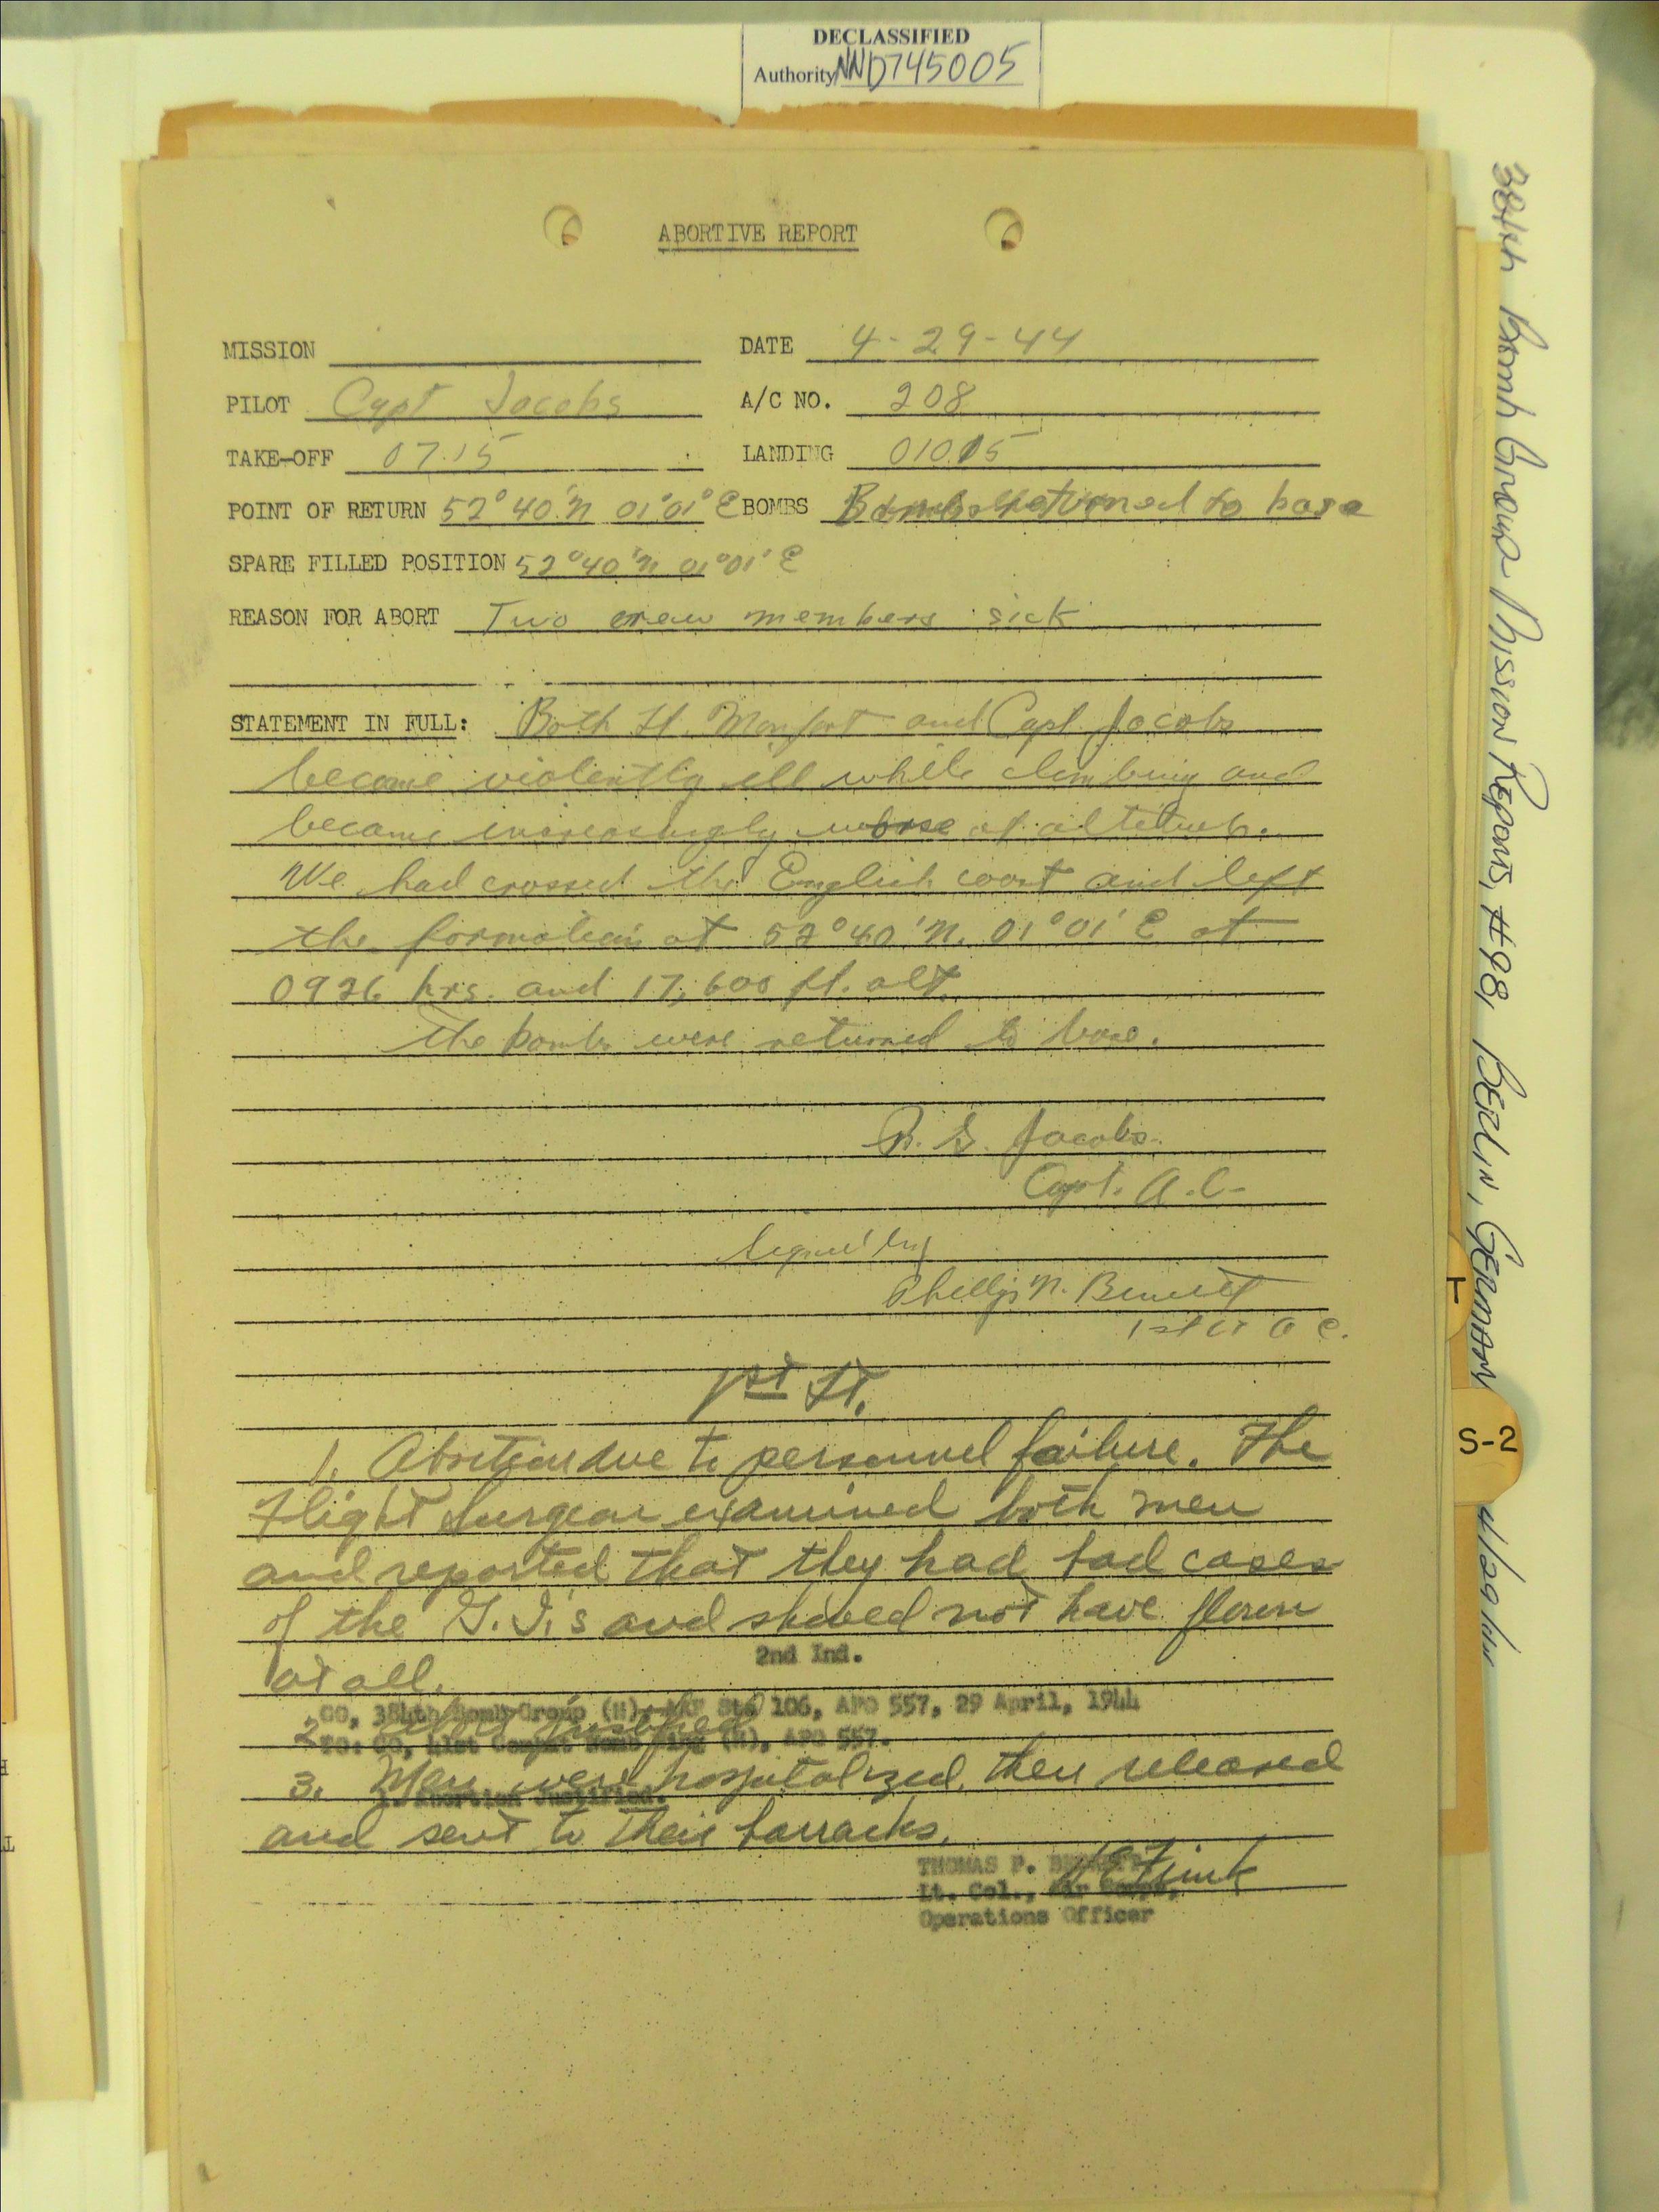 DECLASSIFIED
Authority NND745005
ABORTIVE REPORT
MISSION DATE 4-29-44
PILOT Capt Jacobs A/C NO. 208
TAKE-OFF 0715 LANDING 01015
POINT OF RETURN 52°40'N 01°01° E BOMBS Bombs returned to base
SPARE FILLED POSITION 52°40'N 01°01' E
REASON FOR ABORT Two crew members sick
STATEMENT IN FULL: Both Lt. Monfort and Capt. Jacobs
became violently ill while climbing and
became increasingly worse at altitude.
We had crossed the English coast and left
the formation at 52°40'N. 01°01' E at
0926 hrs. and 17,600 ft. alt.
The bombs were returned to base.
Jacobs
Capt. A.C.
Signed by
N.
1st Lt A C.
1st
1. Abortion due to personnel failure. The
Flight Surgeon examined both men
and reported that they had bad cases
of the G.I.'s and should not have flown
at all.
2nd Ind.
CO, 384th Bomb Group (H), AAF Sta 106, APO 557, 29 April, 1944
2.
TO: CO, 41st Combat Bomb Wing (H), APO 557.
3. Men were hospitalized, then released
1. Abortion Justified.
and sent to their barracks.
THOMAS P.
Fink
Lt. Col., Air Corps,
Operations Officer
384th Bomb Group Mission Reports, #98, Berlin, Germany
T
S-2
4/29/44